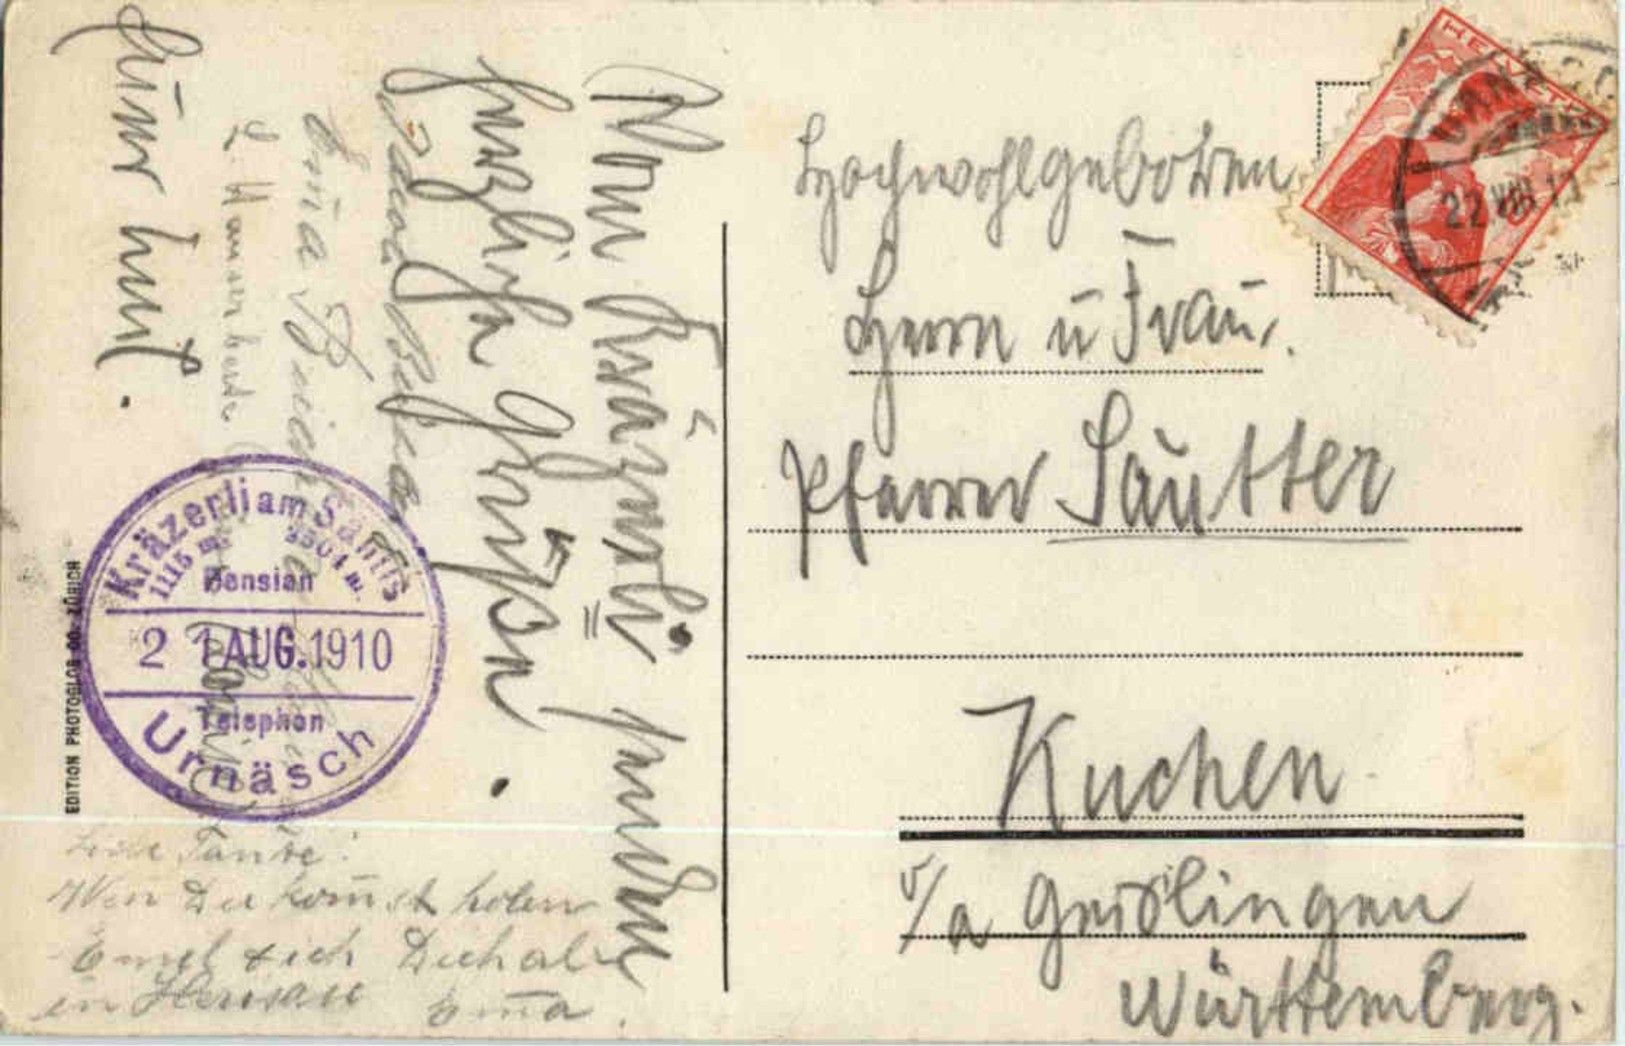 Vom Kräzerli senden
herzliche Grüßen
Emma
L. Hausen
Eurer
Kräzerli am Säntis
1115 m. 2504 m.
Pension
21 AUG. 1910
Telephon
Urnäsch
EDITION PHOTOGLOB CO. ZÜRICH
Liebe Tante!
Wen Du kom̅st holen
Emel & ich Dich ab
in Herisau Em̅a.
HELVETIA
22 VIII 10
Hochwohlgeborenen
Herrn u Frau
Pfarrer Sautter
Kuchen
b/a Geislingen
Württemberg.